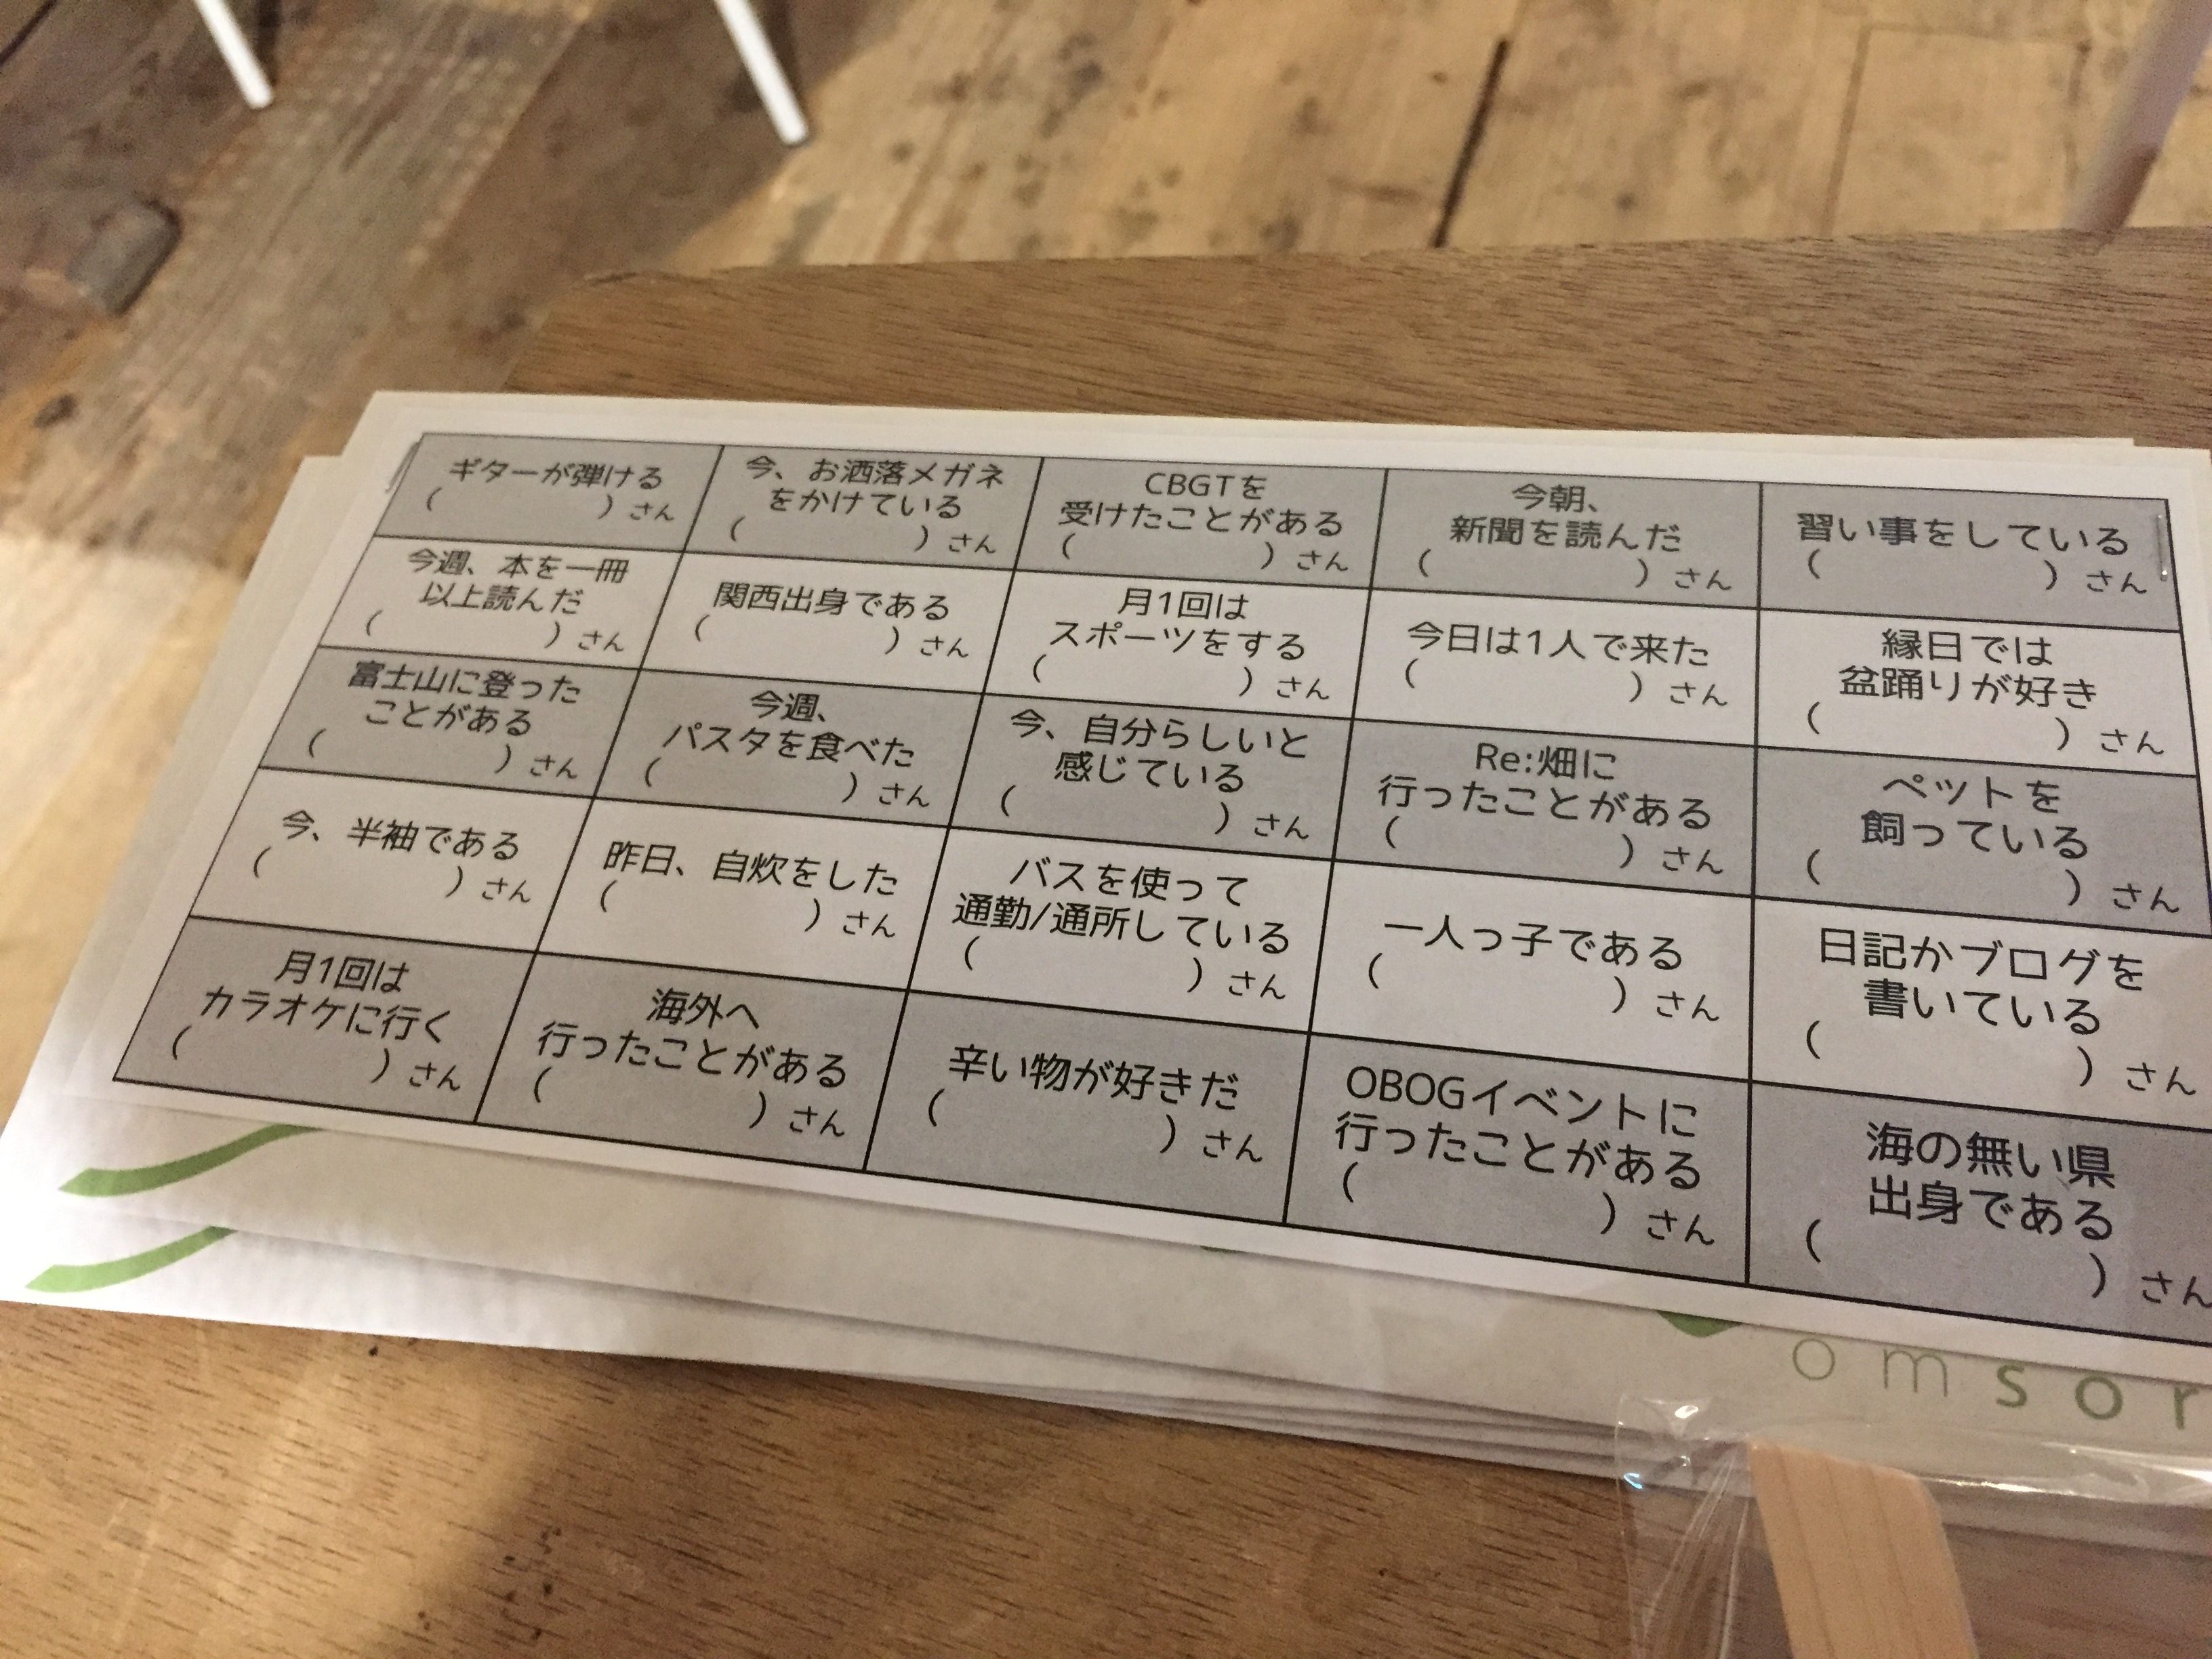 ギターが弾ける
(　　　　　) さん
今、お洒落メガネ
をかけている
(　　　　　) さん
CBGTを
受けたことがある
(　　　　　) さん
今朝、
新聞を読んだ
(　　　　　) さん
習い事をしている
(　　　　　) さん
今週、本を一冊
以上読んだ
(　　　　　) さん
関西出身である
(　　　　　) さん
月1回は
スポーツをする
(　　　　　) さん
今日は1人で来た
(　　　　　) さん
縁日では
盆踊りが好き
(　　　　　) さん
富士山に登った
ことがある
(　　　　　) さん
今週、
パスタを食べた
(　　　　　) さん
今、自分らしいと
感じている
(　　　　　) さん
Re:畑に
行ったことがある
(　　　　　) さん
ペットを
飼っている
(　　　　　) さん
今、半袖である
(　　　　　) さん
昨日、自炊をした
(　　　　　) さん
バスを使って
通勤/通所している
(　　　　　) さん
一人っ子である
(　　　　　) さん
日記かブログを
書いている
(　　　　　) さん
月1回は
カラオケに行く
(　　　　　) さん
海外へ
行ったことがある
(　　　　　) さん
辛い物が好きだ
(　　　　　) さん
OBOGイベントに
行ったことがある
(　　　　　) さん
海の無い県
出身である
(　　　　　) さん
omsor